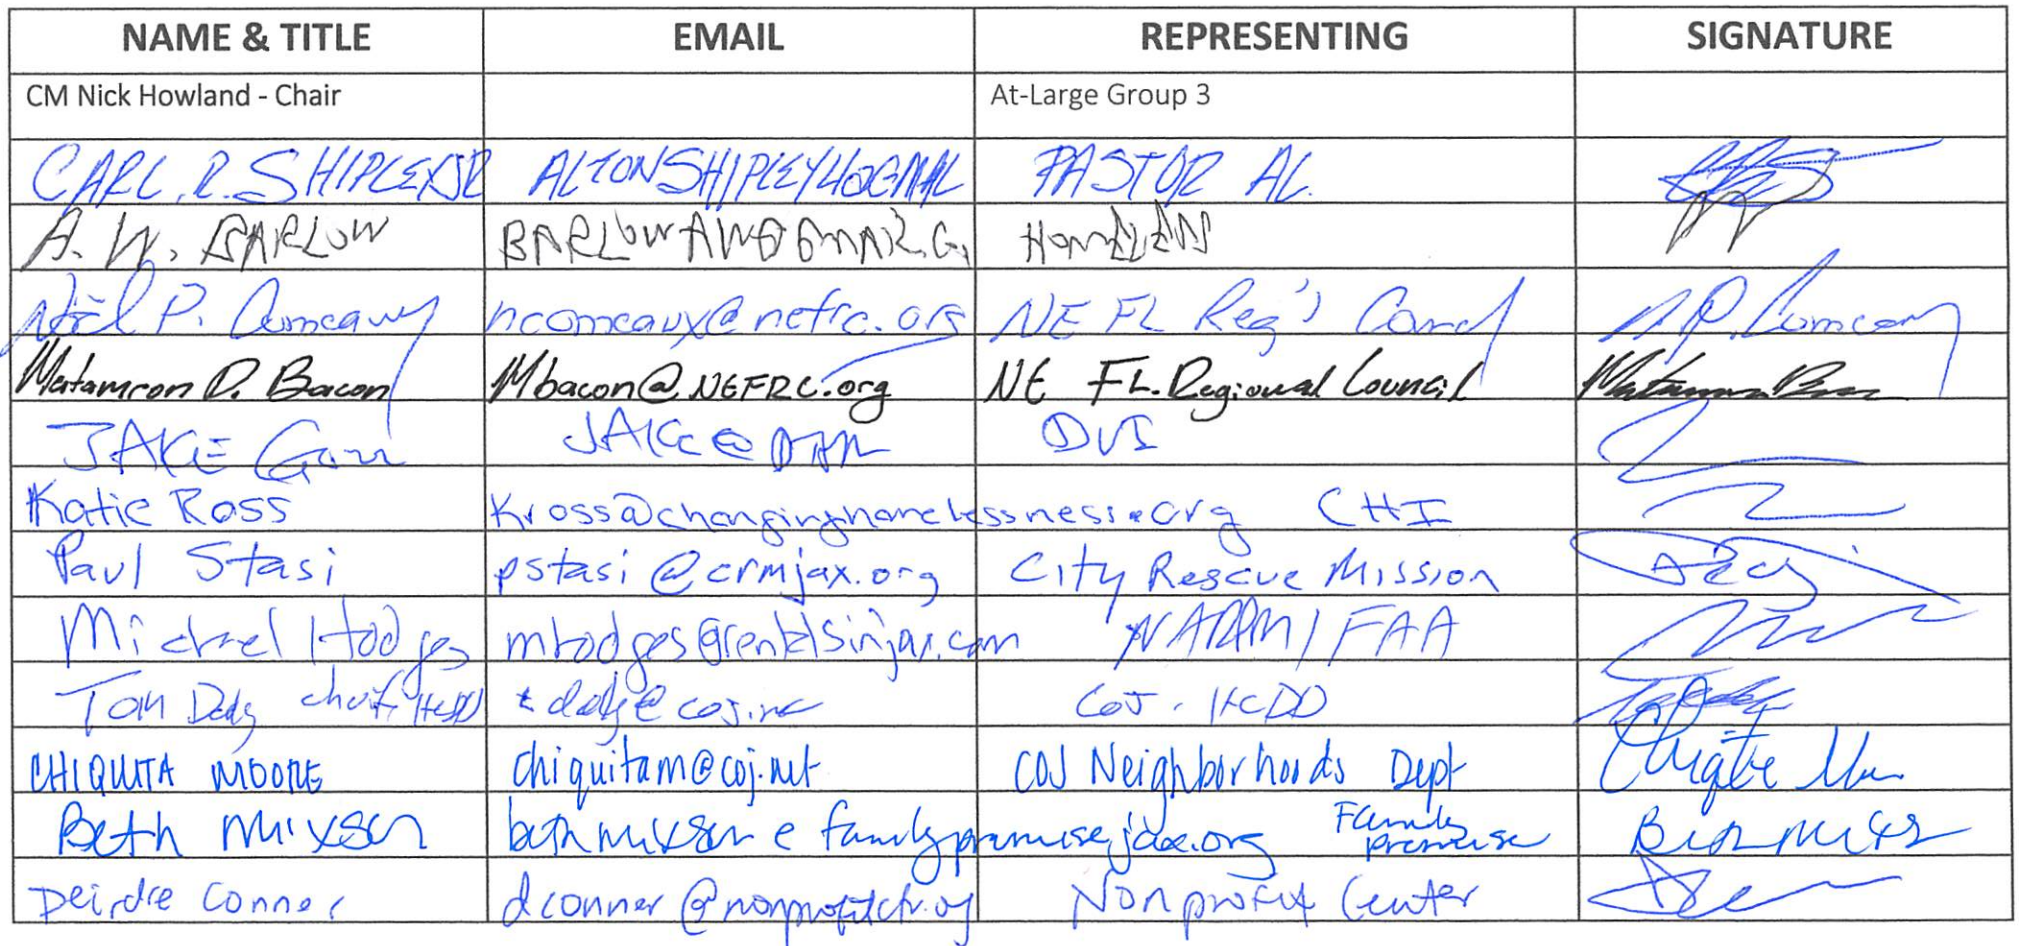 NAME & TITLE EMAIL REPRESENTING SIGNATURE
CM Nick Howland - Chair At-Large Group 3
CARL. R. SHIPLEY JR ALTONSHIPLEY40GMAL PASTOR AL.
A. W. BARLOW
Noël P. Comeaux ncomeaux@nefrc.org NE FL Reg'l
Matamron D. Bacon Mbacon@NEFRC.org NE FL. Regional Council
JAKE JAKE@ DVI
Katie Ross Kross@changinghomelessness.org CHI
Paul Stasi pstasi@crmjax.org City Rescue Mission
Michael Hodges mhodges@rentalsinjax.com NARPM/FAA
Tom Daly chief, HCDD tdaly@coj.net COJ. HCDD
CHIQUITA MOORE chiquitam@coj.net COJ Neighborhoods Dept
Beth Mixson bethmixson@familypromisejax.org Family
promise
Deirdre Conner dconner@nonprofitctr.org Nonprofit Center